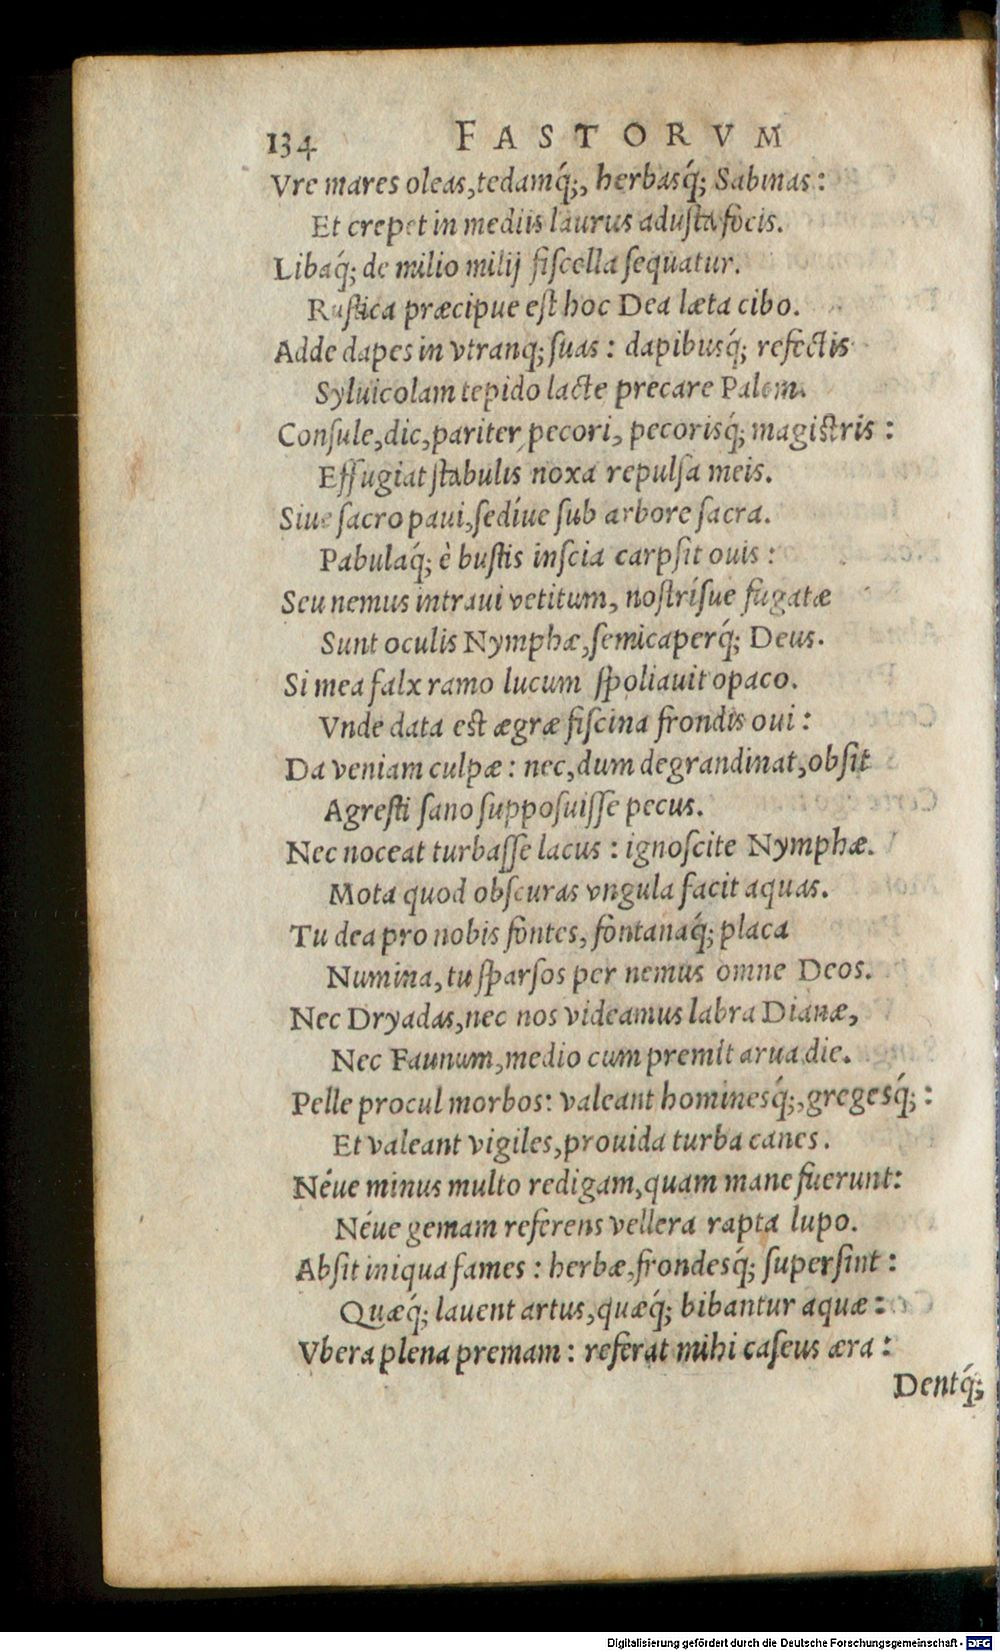 134 FASTORVM
Vre mares oleas, tedamq́;, herbasq́; Sabinas:
Et crepet in mediis laurus adusta focis.
Libaq́; de milio milij fiscella sequatur.
Rustica præcipue est hoc Dea læta cibo.
Adde dapes in vtranq; suas: dapibusq́; refectis
Syluicolam tepido lacte precare Palem.
Consule, dic, pariter pecori, pecorisq́; magistris:
Effugiat stabulis noxa repulsa meis.
Siue sacro paui, sedíue sub arbore sacra.
Pabulaq́; è bustis inscia carpsit ouis:
Seu nemus intraui vetitum, nostrísue fugatæ
Sunt oculis Nymphæ, semicaperq́; Deus.
Si mea falx ramo lucum spoliauit opaco.
Vnde data est ægræ fiscina frondis oui:
Da veniam culpæ: nec, dum degrandinat, obsit
Agresti sano supposuisse pecus.
Nec noceat turbasse lacus: ignoscite Nymphæ.
Mota quod obscuras vngula facit aquas.
Tu dea pro nobis fontes, fontanaq́; placa
Numina, tu sparsos per nemus omne Deos.
Nec Dryadas, nec nos videamus labra Dianæ,
Nec Faunum, medio cum premit arua die.
Pelle procul morbos: valeant hominesq́;, gregesq́;:
Et valeant vigiles, prouida turba canes.
Néue minus multo redigam, quam mane fuerunt:
Néue gemam referens vellera rapta lupo.
Absit iniqua fames: herbæ, frondesq́; supersint:
Quæq́; lauent artus, quæq́; bibantur aquæ:
Vbera plena premam: referat mihi caseus æra:
Dentq́;
Digitalisierung gefördert durch die Deutsche Forschungsgemeinschaft - DFG